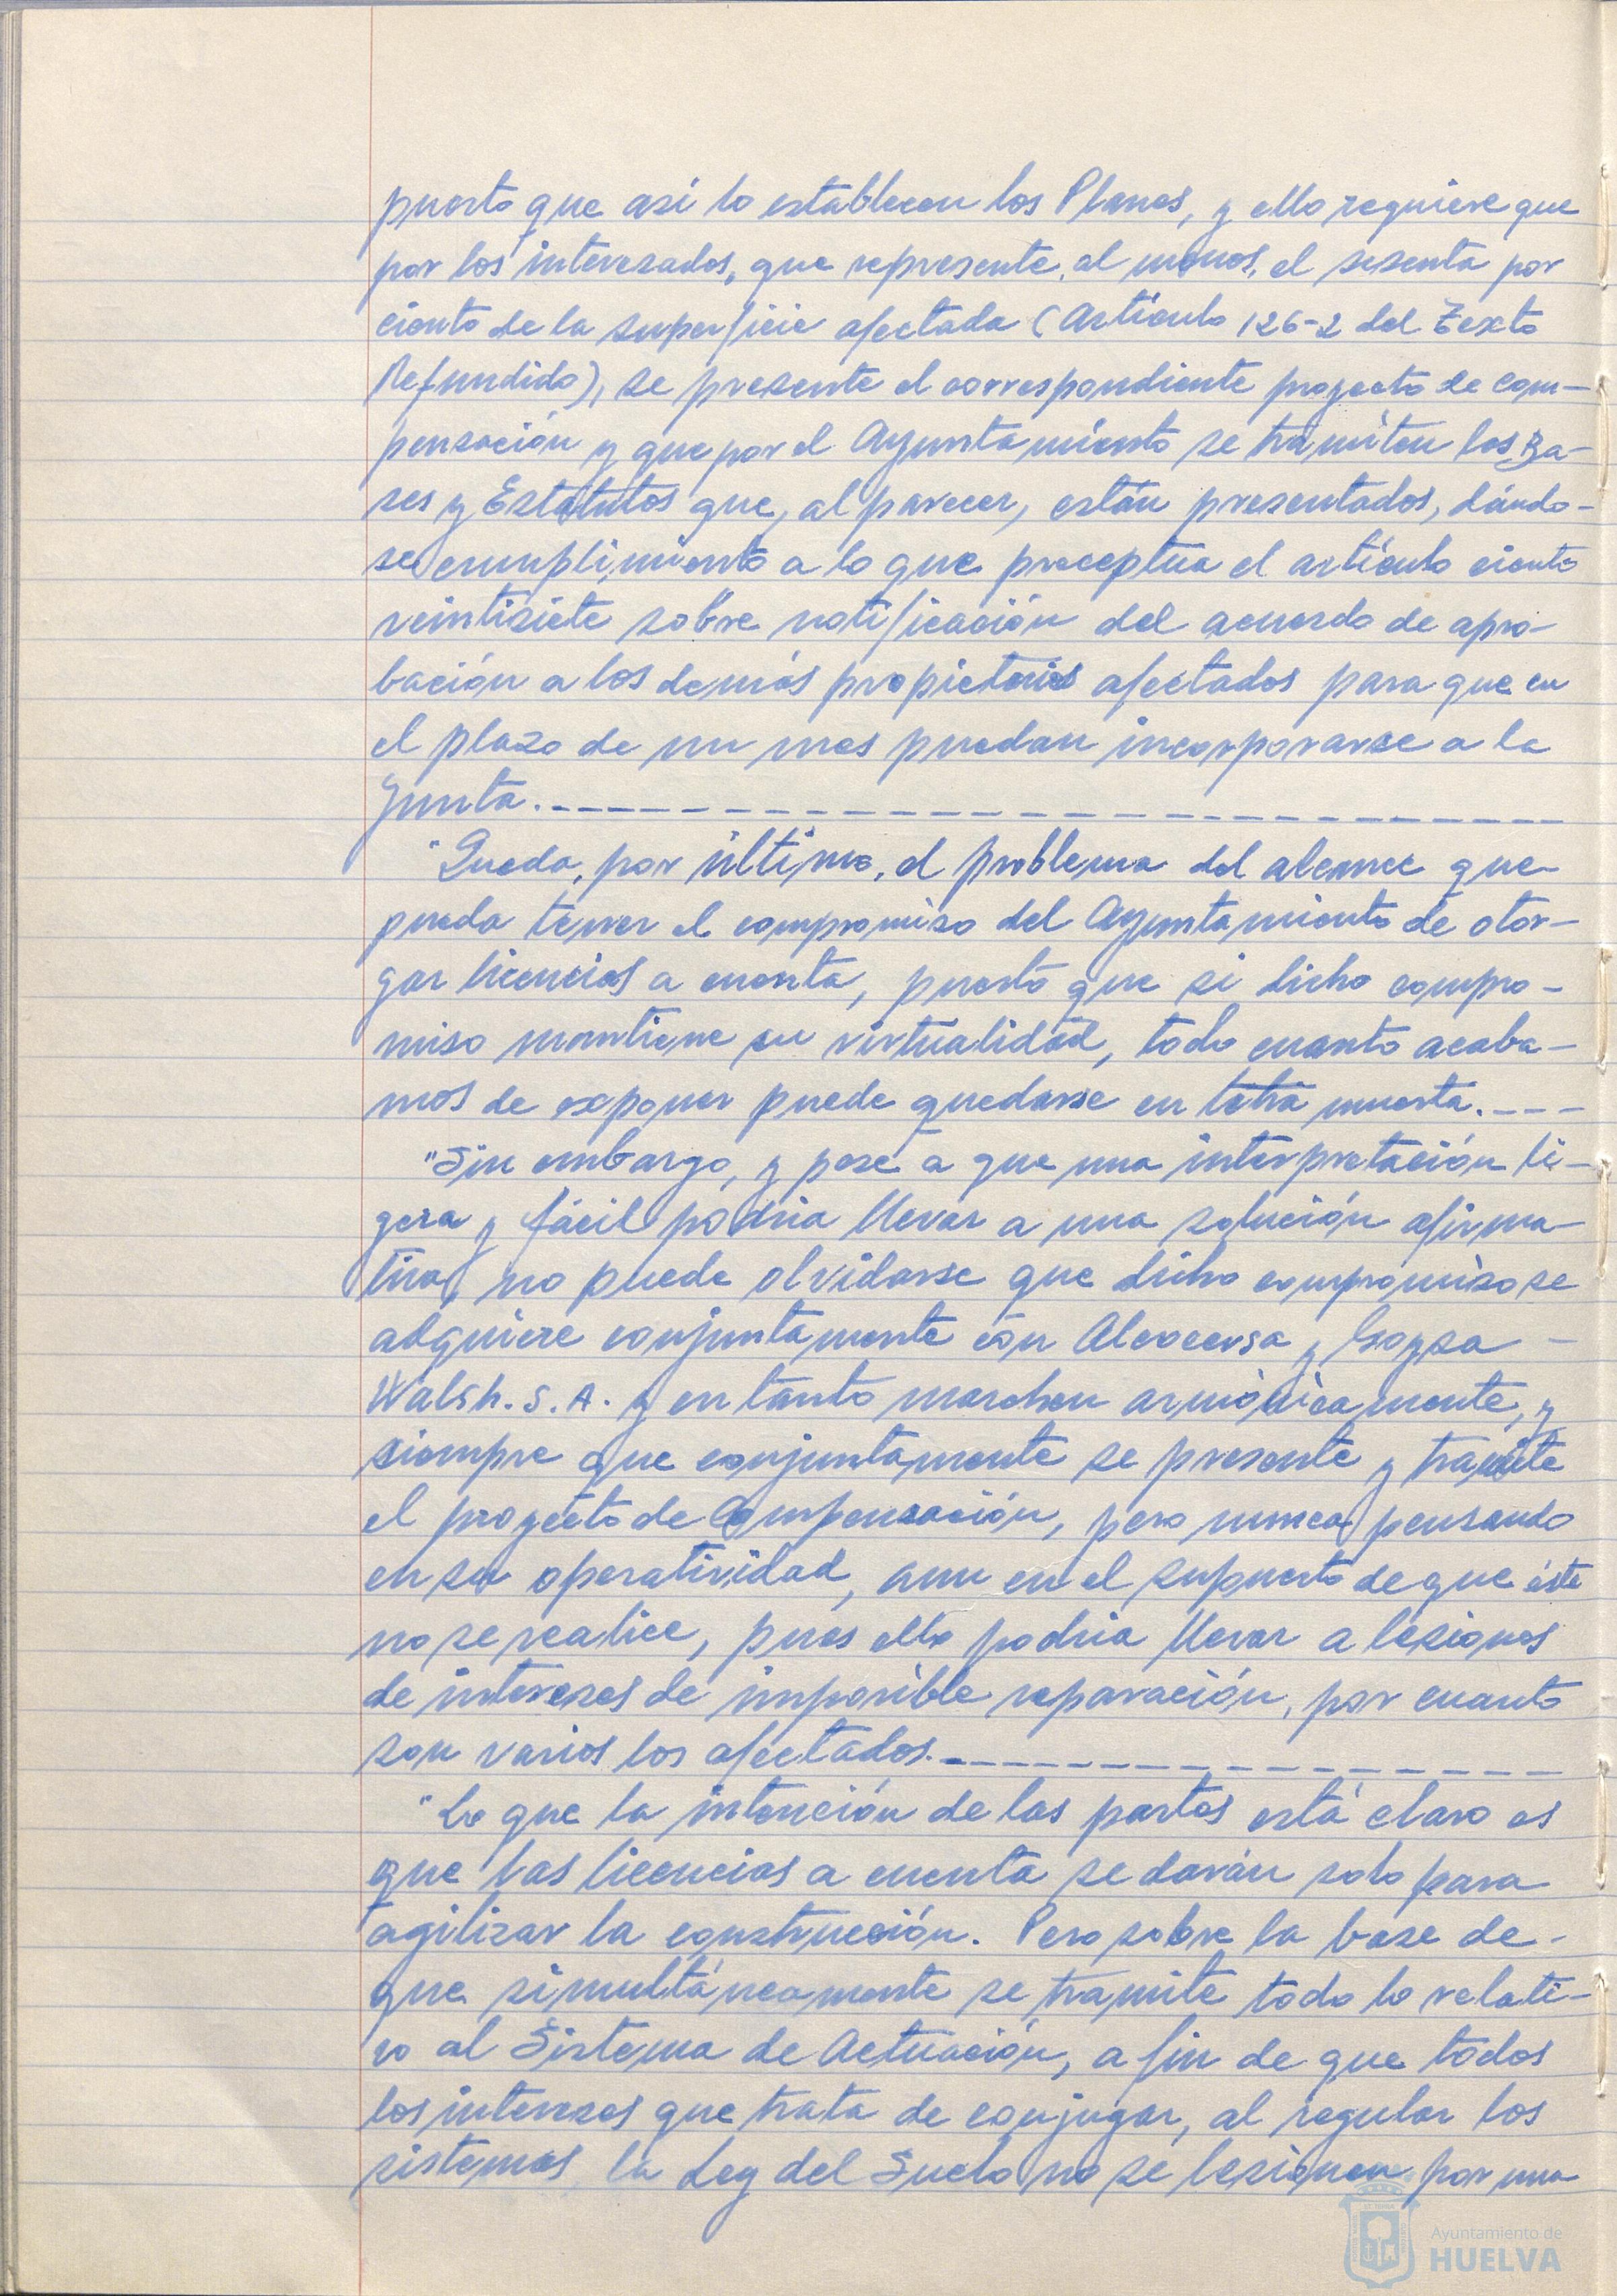 puesto que asi lo establecen los Planes, y ello requiere que
por los interesados, que represente, al menos, el sesenta por
ciento de la superficie afectada (Artículo 126-2 del Texto
Refundido), se presente el correspondiente proyecto de Com-
pensación y que por el Ayuntamiento se tramiten las Ba-
ses y Estatutos que, al parecer, están presentados, dándo-
se cumplimiento a lo que preceptua el artículo ciento
veintisiete sobre notificación del acuerdo de apro-
bación a los demás propietarios afectados para que en
el plazo de un mes puedan incorporarse a la
Junta.
"Queda, por último, el problema del alcance que
pueda tener el compromiso del Ayuntamiento de otor-
gar licencias a cuenta, puesto que si dicho compro-
miso mantiene su virtualidad, todo cuanto acaba-
mos de exponer puede quedarse en letra muerta.
"Sin embargo, y pese a que una interpretación li-
gera y fácil podria llevar a una solución afirma-
tiva, no puede olvidarse que dicho compromiso se
adquiere conjuntamente con y
Walsh. S. A. y en tanto marchen armónicamente, y
siempre que conjuntamente se presente y tramite
el proyecto de Compensación, pero nunca pensando
en su operatividad, aun en el supuesto de que éste
no se realice, pues ello podria llevar a lesiones
de intereses de imposible reparación, por cuanto
son varios los afectados.
"Lo que la intención de las partes está claro es
que las licencias a cuenta se darán solo para
agilizar la construcción. Pero sobre la base de-
que simultáneamente se tramite todo lo relati-
vo al Sistema de Actuación, a fin de que todos
los intereses que trata de conjugar, al regular los
sistemas, la Ley del Suelo no se lesionen por una
Ayuntamiento de
HUELVA